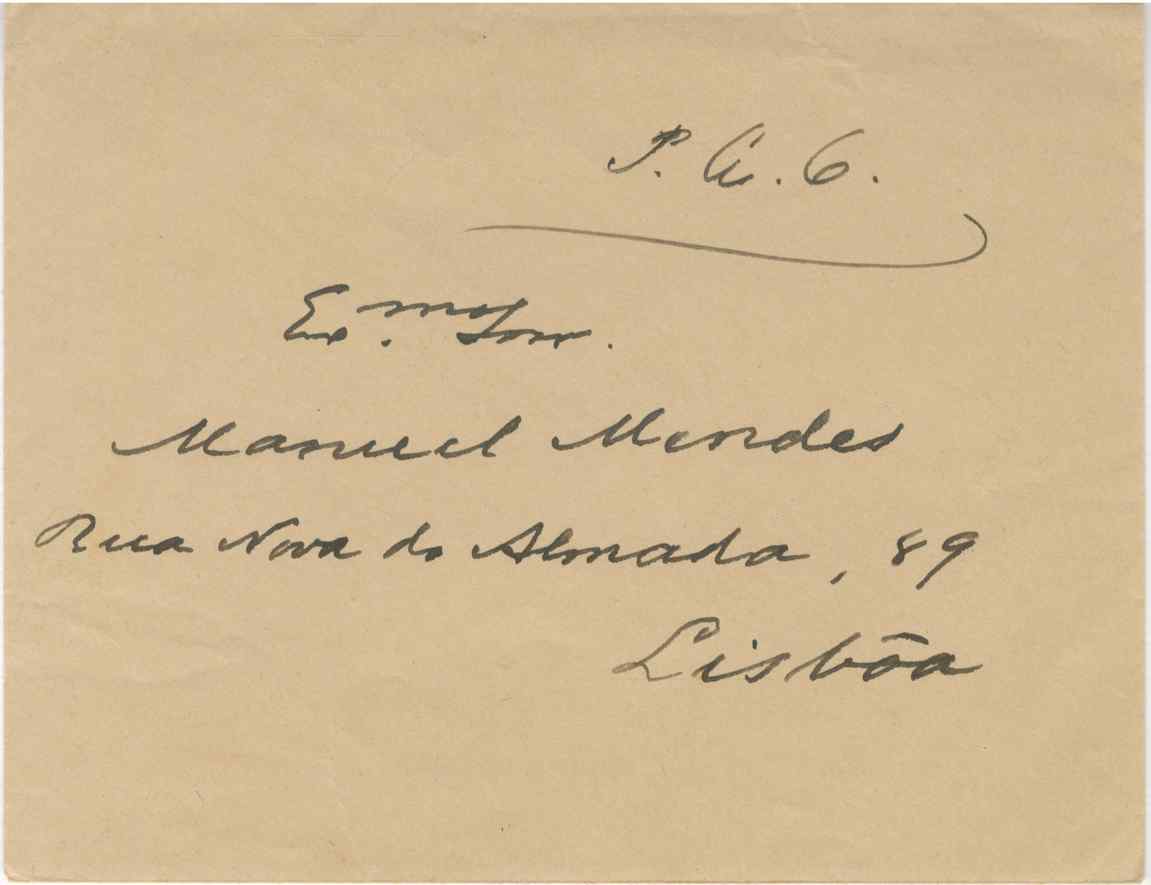 P. A. C.
Ex.mo Snr.
Manuel Mendes
Rua Nova do Almada, 89
Lisbôa